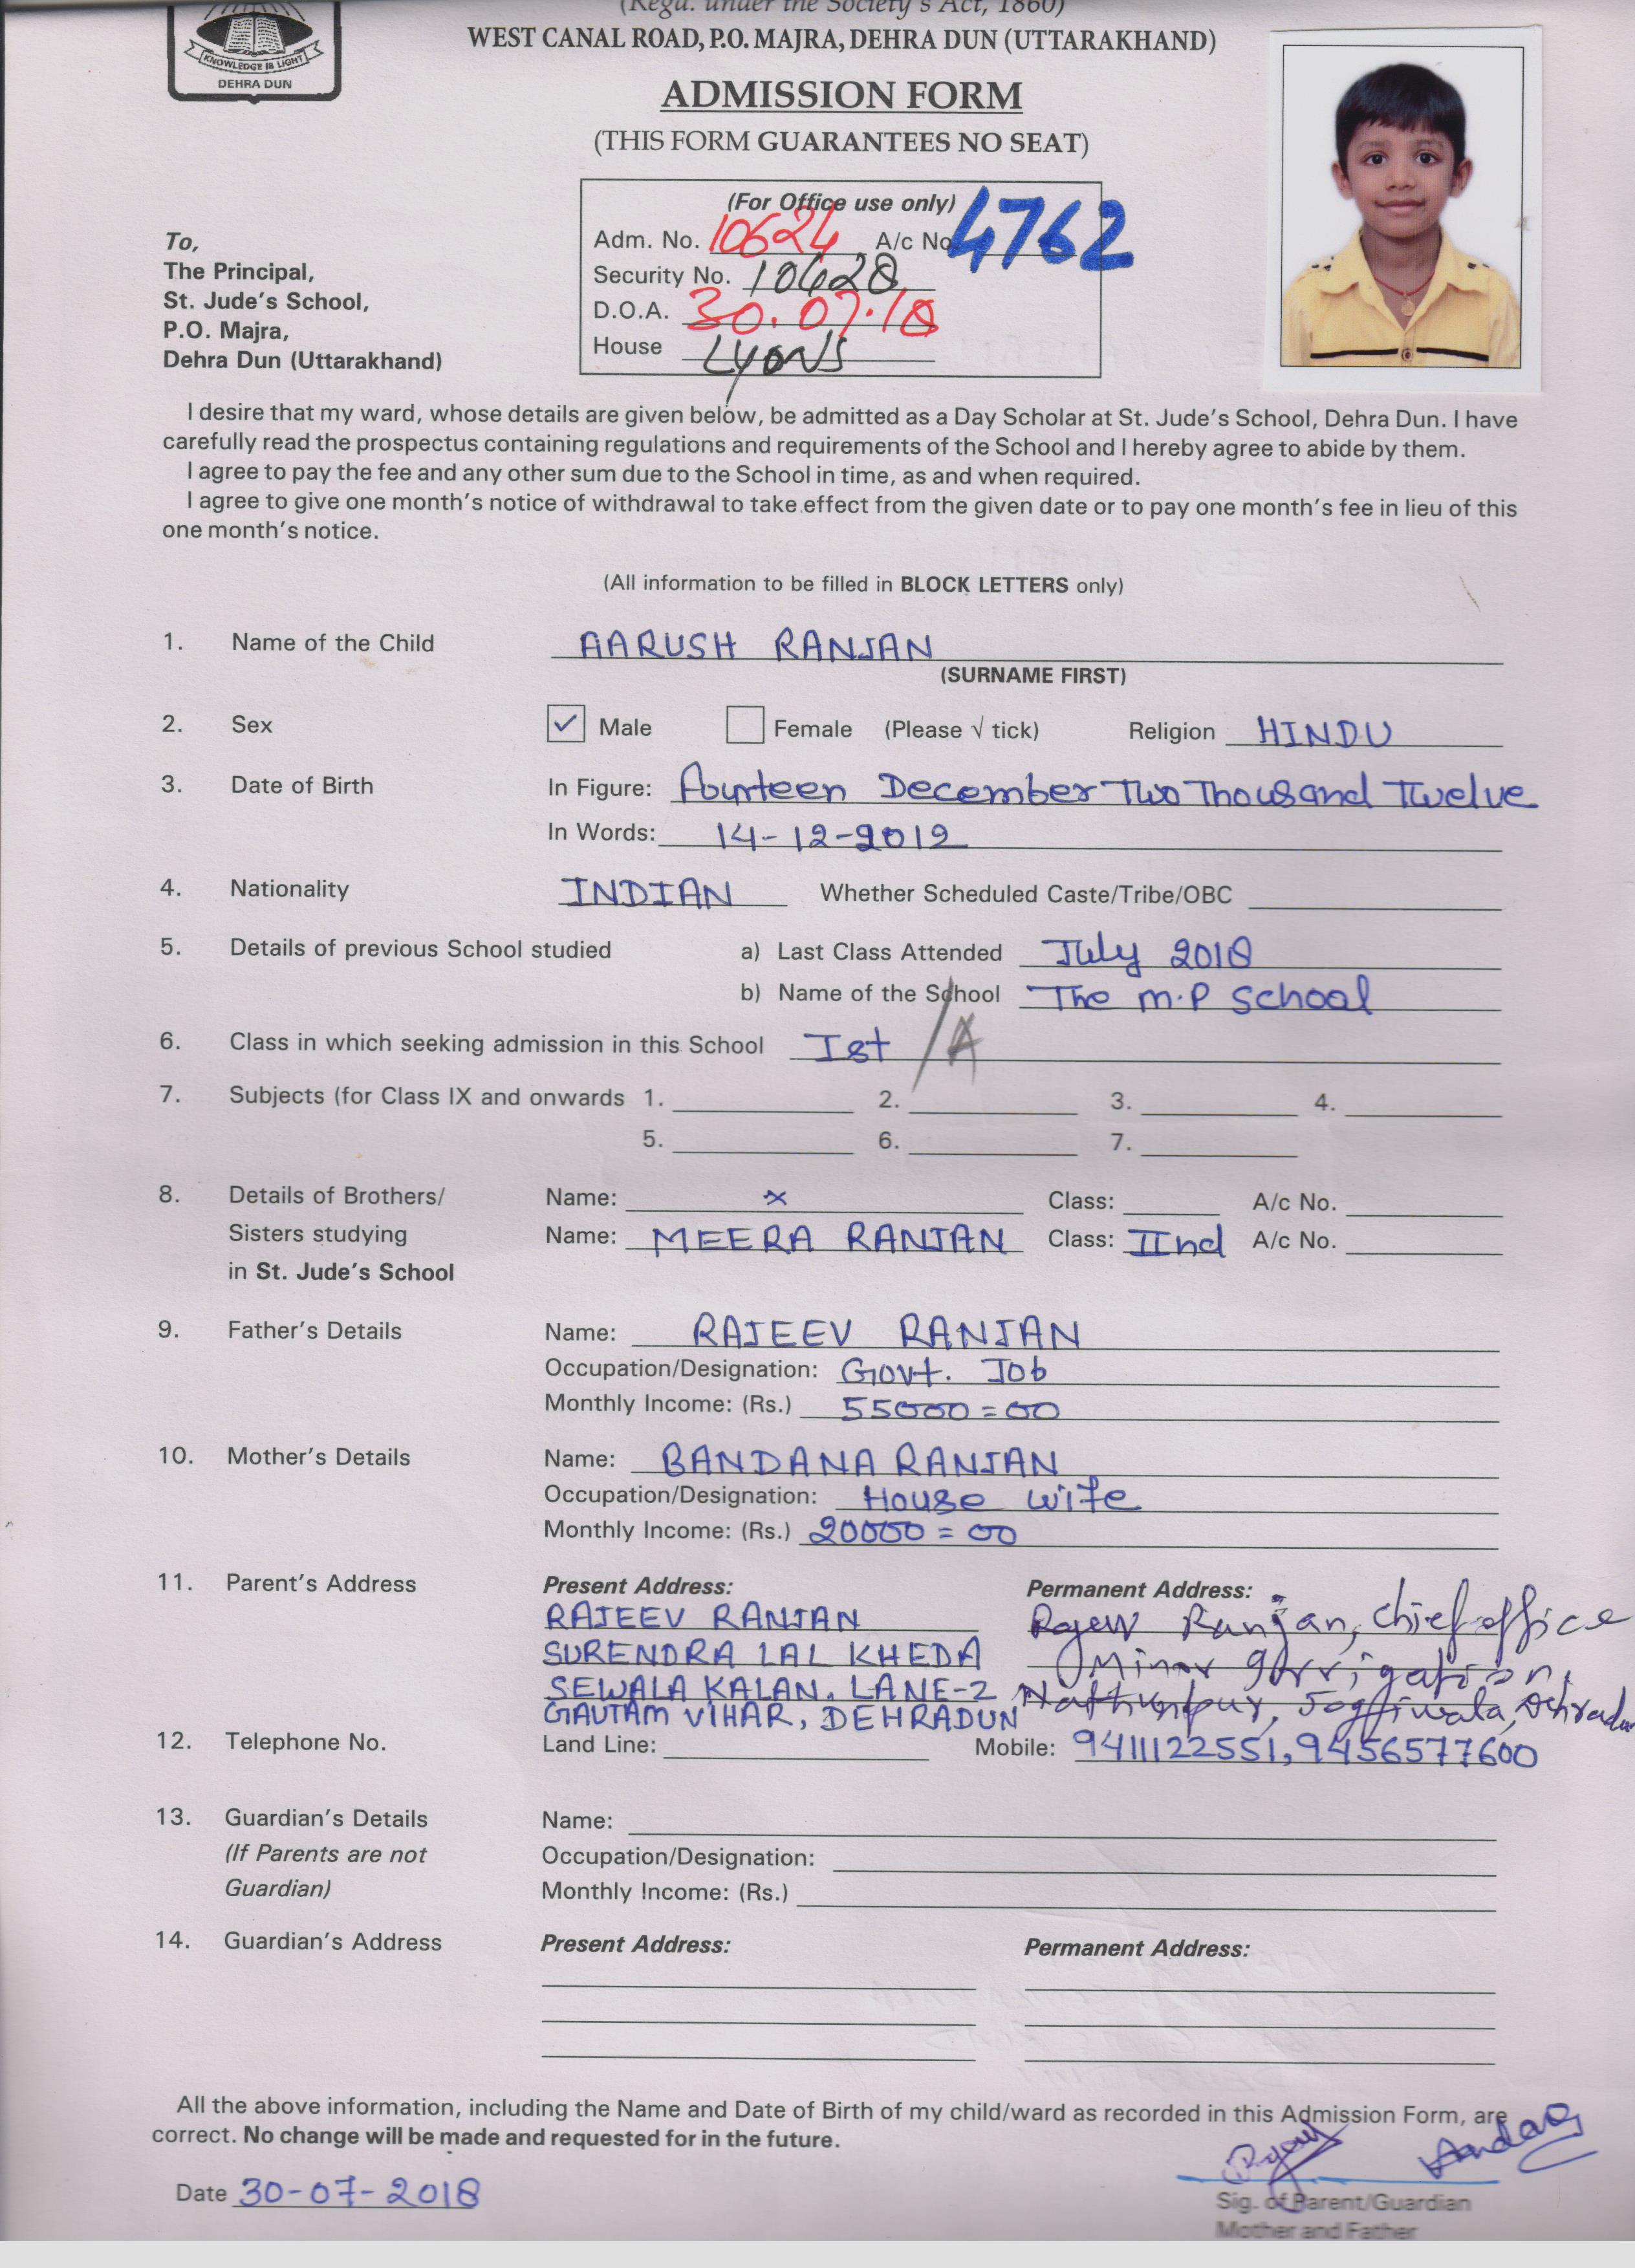 (Regd. under the Society's Act, 1860)
WEST CANAL ROAD, P.O. MAJRA, DEHRA DUN (UTTARAKHAND)
KNOWLEDGE IS LIGHT
DEHRA DUN
ADMISSION FORM
(THIS FORM GUARANTEES NO SEAT)
(For Office use only)
Adm. No. 10624 A/c No. 4762
Security No. 10628
D.O.A. 30.07.18
House Lyons
To,
The Principal,
St. Jude's School,
P.O. Majra,
Dehra Dun (Uttarakhand)
I desire that my ward, whose details are given below, be admitted as a Day Scholar at St. Jude's School, Dehra Dun. I have
carefully read the prospectus containing regulations and requirements of the School and I hereby agree to abide by them.
I agree to pay the fee and any other sum due to the School in time, as and when required.
I agree to give one month's notice of withdrawal to take effect from the given date or to pay one month's fee in lieu of this
one month's notice.
(All information to be filled in BLOCK LETTERS only)
1. Name of the Child AARUSH RANJAN
(SURNAME FIRST)
2. Sex ✓ Male Female (Please √ tick) Religion HINDU
3. Date of Birth In Figure: Fourteen December Two Thousand Twelve
In Words: 14-12-2012
4. Nationality INDIAN Whether Scheduled Caste/Tribe/OBC
5. Details of previous School studied a) Last Class Attended July 2018
b) Name of the School The M.P School
6. Class in which seeking admission in this School Ist /A
7. Subjects (for Class IX and onwards 1. 2. 3. 4.
5. 6. 7.
8. Details of Brothers/ Name: x Class: A/c No.
Sisters studying Name: MEERA RANJAN Class: IInd A/c No.
in St. Jude's School
9. Father's Details Name: RAJEEV RANJAN
Occupation/Designation: Govt. Job
Monthly Income: (Rs.) 55000=00
10. Mother's Details Name: BANDANA RANJAN
Occupation/Designation: House wife
Monthly Income: (Rs.) 20000=00
11. Parent's Address Present Address: Permanent Address:
RAJEEV RANJAN Rajeev Ranjan, Chief office
SURENDRA LAL KHEDA Minor
SEWALA KALAN, LANE-2
GAUTAM VIHAR, DEHRADUN
12. Telephone No. Land Line: Mobile: 9411122551, 9456577600
13. Guardian's Details Name:
(If Parents are not Occupation/Designation:
Guardian) Monthly Income: (Rs.)
14. Guardian's Address Present Address: Permanent Address:
All the above information, including the Name and Date of Birth of my child/ward as recorded in this Admission Form, are
correct. No change will be made and requested for in the future.
Date 30-07-2018
Sig. of Parent/Guardian
Mother and Father